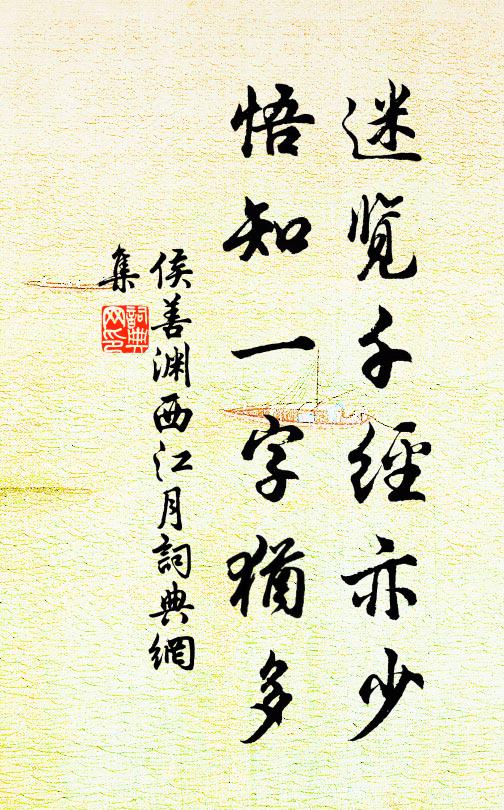 迷览千經亦少
悟知一字猶多
侯善渊西江月詞典網
集
詞典
网印